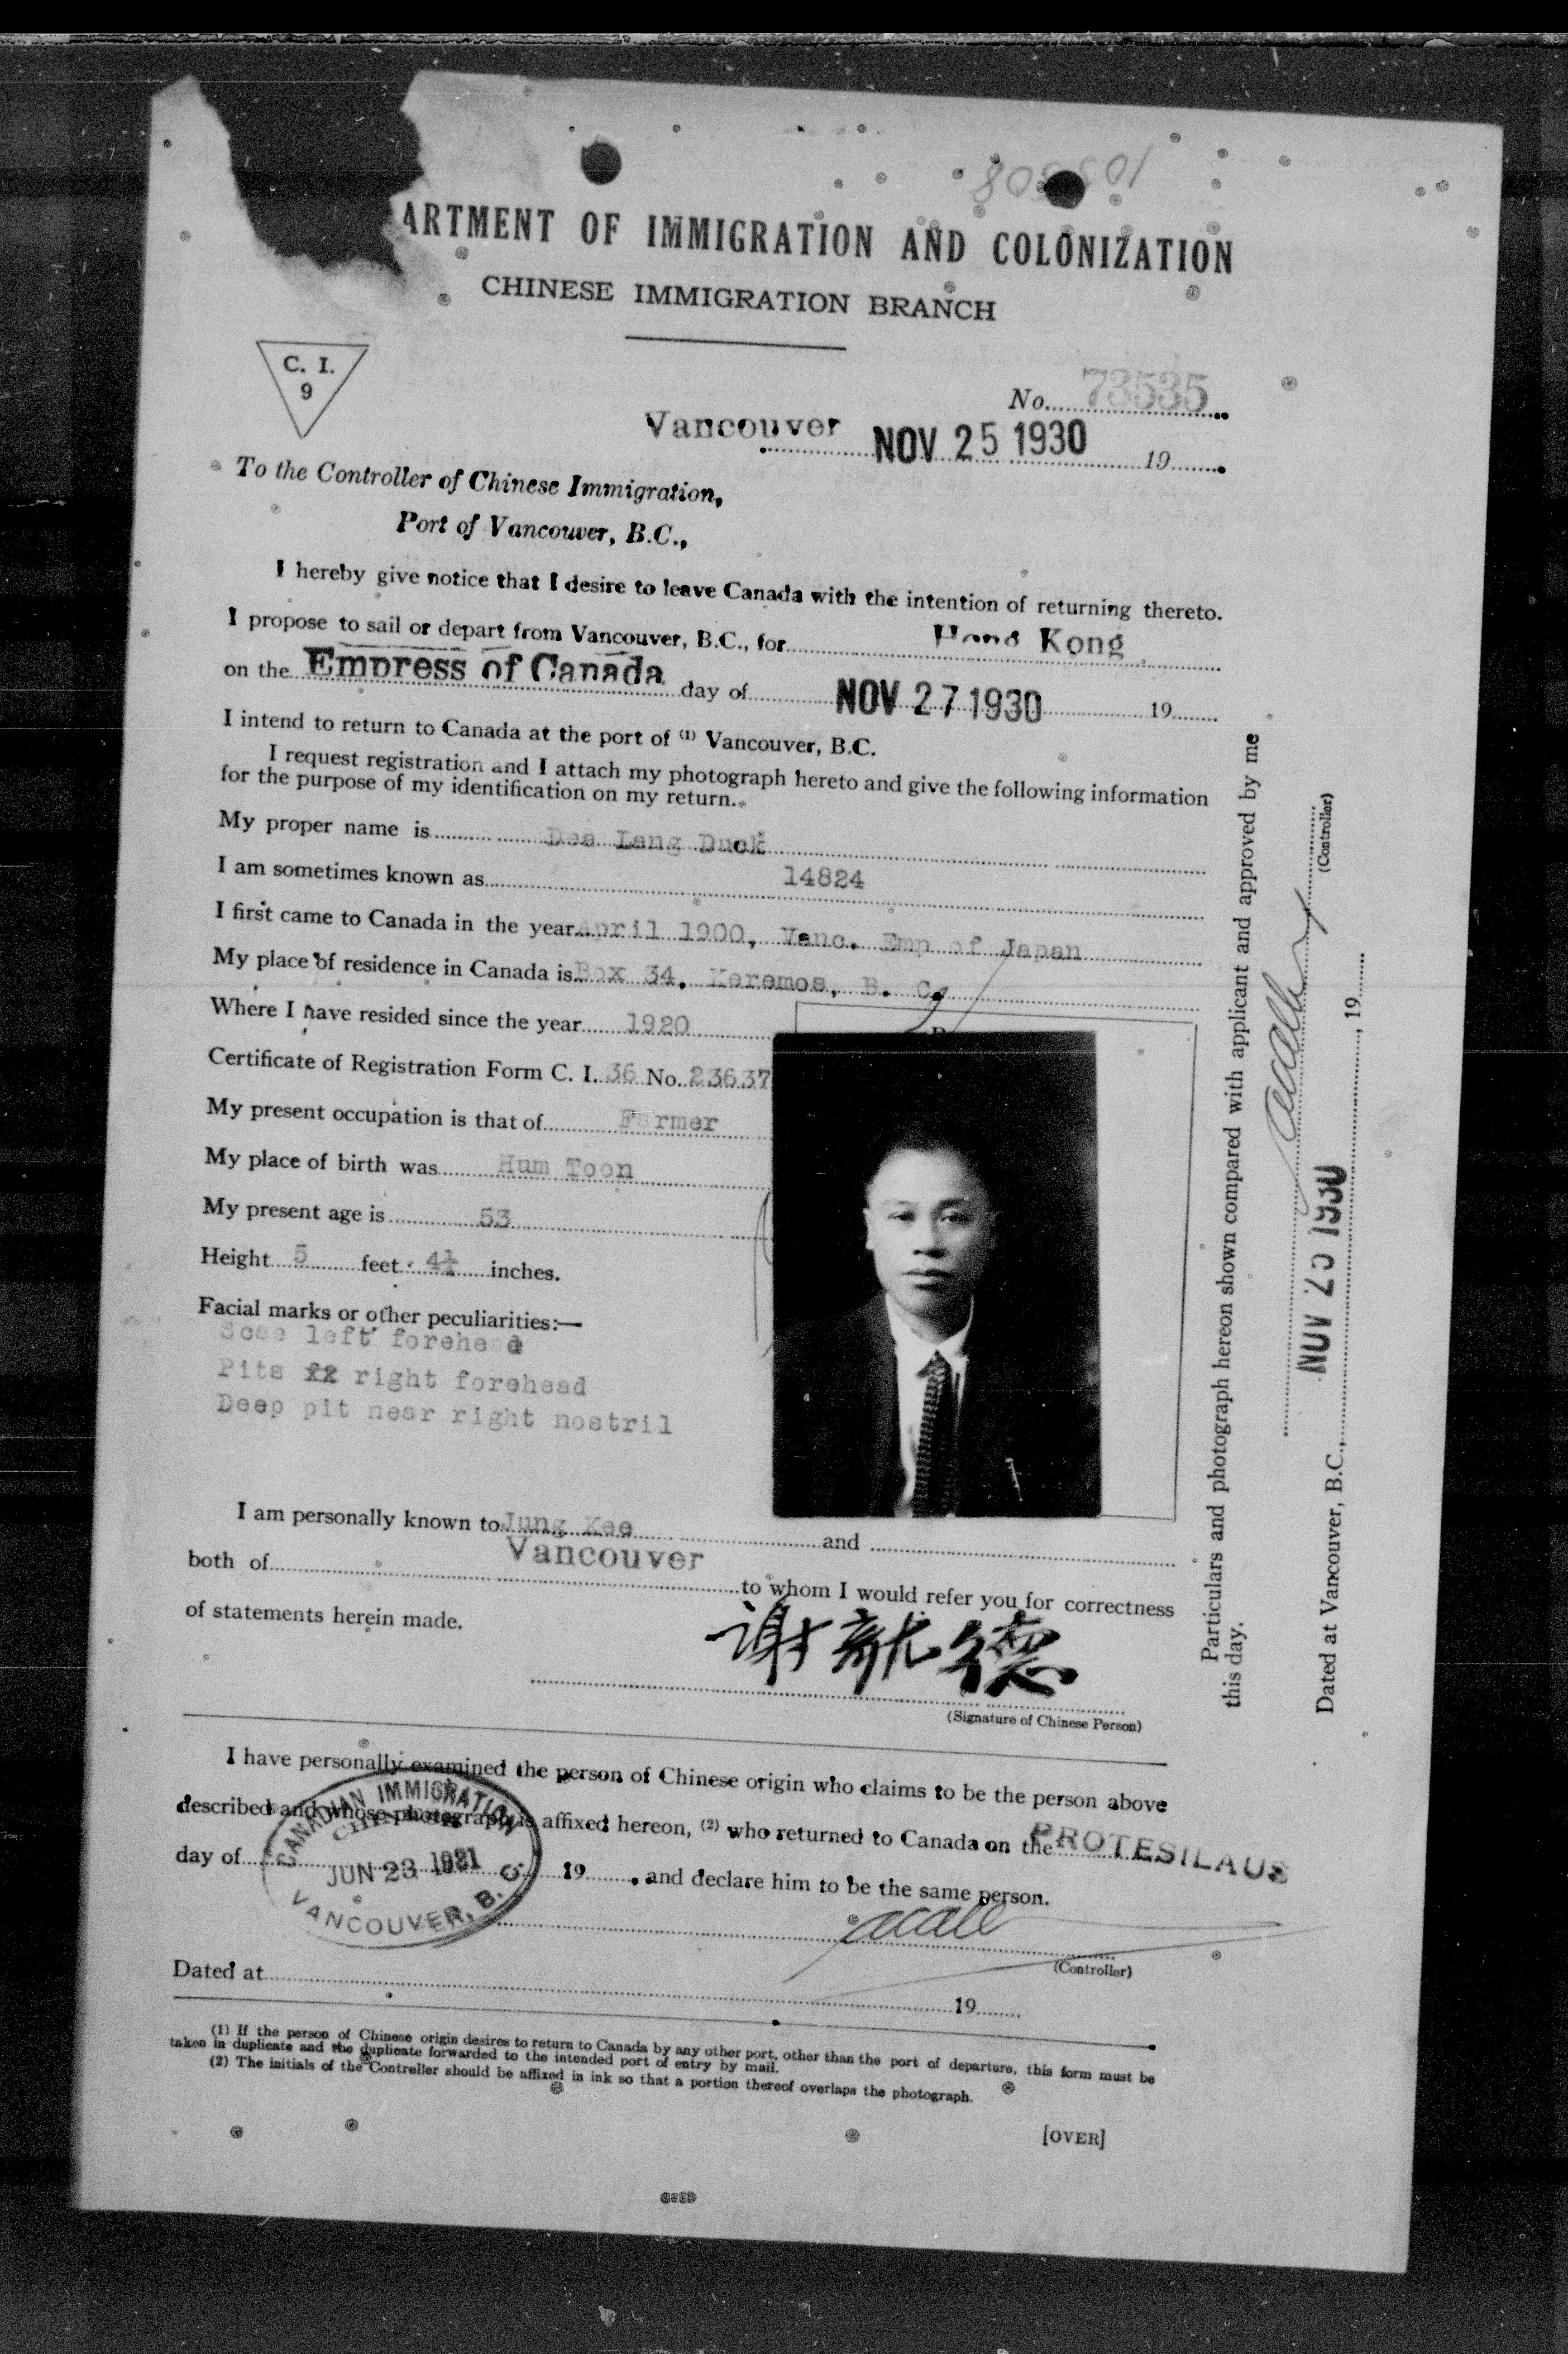 103808
ARTMENT OF IMMIGRATION AND COLONIZATION
CHINESE IMMIGRATION BRANCH
C. I.
9
No. 73535
Vancouver NOV 25 1930 19
To the Controller of Chinese Immigration,
Port of Vancouver, B.C.,
I hereby give notice that I desire to leave Canada with the intention of returning thereto.
I propose to sail or depart from Vancouver, B.C., for Hong Kong
on the Empress of Canada day of NOV 27 1930 19
I intend to return to Canada at the port of (1) Vancouver, B.C.
I request registration and I attach my photograph hereto and give the following information
for the purpose of my identification on my return.
My proper name is Dea Lang Duck
I am sometimes known as 14824
I first came to Canada in the year April 1900, Vanc. Emp of Japan
My place of residence in Canada is Box 34, Keremos, B. C.
Where I have resided since the year 1920
Certificate of Registration Form C. I. 36 No. 23637
My present occupation is that of Farmer
My place of birth was Hum Toon
My present age is 53
Height 5 feet 4½ inches.
Facial marks or other peculiarities:—
left forehead
Pits xx right forehead
Deep pit near right nostril
I am personally known to Jung Kee and
both of Vancouver to whom I would refer you for correctness
of statements herein made.
謝就德
(Signature of Chinese Person)
I have personally examined the person of Chinese origin who claims to be the person above
described and whose photograph is affixed hereon, (2) who returned to Canada on the PROTESILAUS
day of 19 , and declare him to be the same person.
CANADIAN IMMIGRATION
JUN 23 1931
VANCOUVER, B. C.
(Controller)
Dated at 19
(1) If the person of Chinese origin desires to return to Canada by any other port, other than the port of departure, this form must be
taken in duplicate and the duplicate forwarded to the intended port of entry by mail.
(2) The initials of the Controller should be affixed in ink so that a portion thereof overlaps the photograph.
[OVER]
Particulars and photograph hereon shown compared with applicant and approved by me
this day.
(Controller)
Dated at Vancouver, B.C., NOV 25 1930 , 19